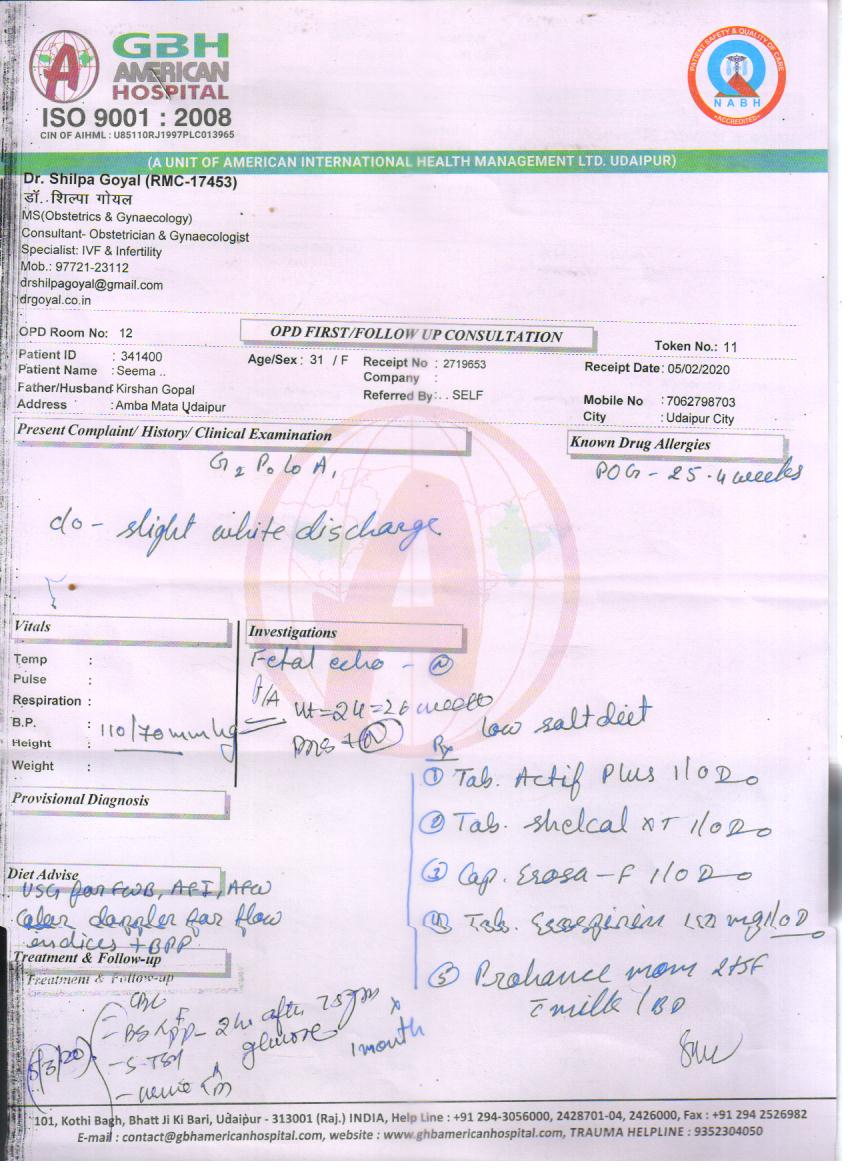 GBH
AMERICAN
HOSPITAL
ISO 9001 : 2008
CIN OF AIHML : U85110RJ1997PLC013965
PATIENT SAFETY & QUALITY OF CARE
NABH
ACCREDITED
(A UNIT OF AMERICAN INTERNATIONAL HEALTH MANAGEMENT LTD. UDAIPUR)
Dr. Shilpa Goyal (RMC-17453)
डॉ. शिल्पा गोयल
MS(Obstetrics & Gynaecology)
Consultant- Obstetrician & Gynaecologist
Specialist: IVF & Infertility
Mob.: 97721-23112
drshilpagoyal@gmail.com
drgoyal.co.in
OPD Room No: 12
OPD FIRST/FOLLOW UP CONSULTATION
Token No.: 11
Patient ID : 341400 Age/Sex : 31 / F Receipt No : 2719653 Receipt Date: 05/02/2020
Patient Name : Seema .. Company :
Father/Husband Kirshan Gopal Referred By: . . SELF Mobile No : 7062798703
Address : Amba Mata Udaipur City : Udaipur City
Present Complaint/ History/ Clinical Examination
Known Drug Allergies
G2 P0 L0 A1
POG - 25.4 weeks
c/o - slight white discharge
Vitals
Investigations
Temp :
Fetal echo - N
Pulse :
P/A
Respiration :
Ut = 24 = 26 weeks
B.P. : 110/70 mmHg
Height :
Weight :
low salt diet
Rx
1 Tab. Actif Plus 1 OD
2 Tab. Shelcal XT 1 OD
3 Cap. - F 1 OD
4 Tab. Ecospirin 150 mg 1 OD
5 Prohance mom 2 tsf
c milk / BD
Provisional Diagnosis
Diet Advise
USG for FWB, AFI, AFW
Color doppler for flow
indices + BPP
Treatment & Follow-up
Treatment & Follow-up
CBC
- 2 hr after 75 gm
glucose
x
1 month
- S. TSH
5/3/20
101, Kothi Bagh, Bhatt Ji Ki Bari, Udaipur - 313001 (Raj.) INDIA, Help Line : +91 294-3056000, 2428701-04, 2426000, Fax : +91 294 2526982
E-mail : contact@gbhamericanhospital.com, website : www.ghbamericanhospital.com, TRAUMA HELPLINE : 9352304050